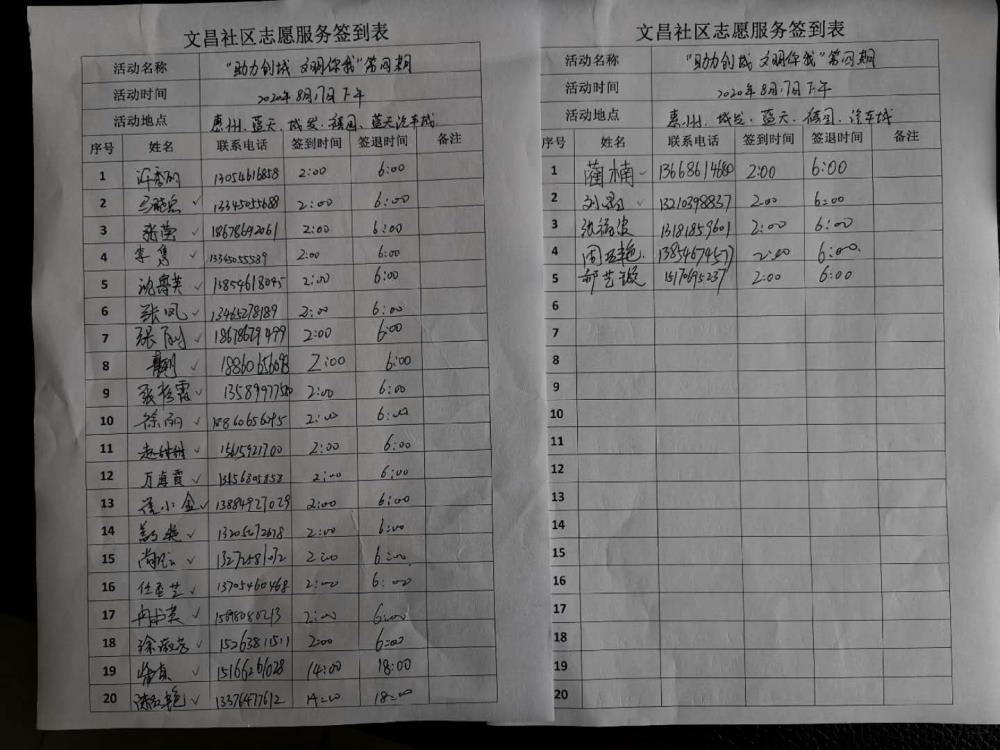 文昌社区志愿服务签到表
活动名称 "助力创城 文明你我"第四期
活动时间 2020年8月17日下午
活动地点 惠州、蓝天、城发、福园、蓝天汽车城
序号 姓名 联系电话 签到时间 签退时间 备注
1 13054616858 2:00 6:00
2 13345055688 2:00 6:00
3 张莹 18678692061 2:00 6:00
4 李隽 13345055589 2:00 6:00
5 沈春英 13854618045 2:00 6:00
6 张凤 13465278189 2:00 6:00
7 张丽 18678679499 2:00 6:00
8 2:00 6:00
9 2:00 6:00
10 徐丽 18860656095 2:00 6:00
11 15615921700 2:00 6:00
12 万海霞 2:00 6:00
13 崔小金 13884927029 2:00 6:00
14 2:00 6:00
15 2:00 6:00
16 13705460468 2:00 6:00
17 冉书英 2:00 6:00
18 15263811511 2:00 6:00
19 15166261028 14:00 18:00
20 13376477612 14:00 18:00
文昌社区志愿服务签到表
活动名称 "助力创城 文明你我"第四期
活动时间 2020年8月17日下午
活动地点 惠州、城发、蓝天、福园、汽车城
序号 姓名 联系电话 签到时间 签退时间 备注
1 蔺楠 13668614680 2:00 6:00
2 13210398837 2:00 6:00
3 张福波 13181859601 2:00 6:00
4 13854674577 2:00 6:00
5 郝艺璇 15170695237 2:00 6:00
6
7
8
9
10
11
12
13
14
15
16
17
18
19
20